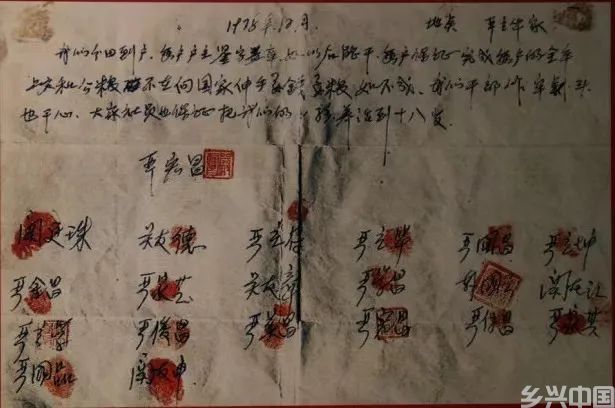 1978年12月. 地点 严立华家
我们分田到户,每户户主签字盖章,如以后能干,每户保证完成每户的全年
上交和公粮不在向国家伸手要钱要粮如不成,我们干部作牢杀头
也干心,大家社员也保证把我们的小孩养活到十八岁。
严宏昌
关廷珠 关友德 严立符 严立华 严国昌 严立坤
严金昌 严家芝 关友章 严学昌 韩国云 关友江
严立学 严俊昌 严美昌 严宏昌 严付昌 严家其
严国品 关友申
乡兴中国